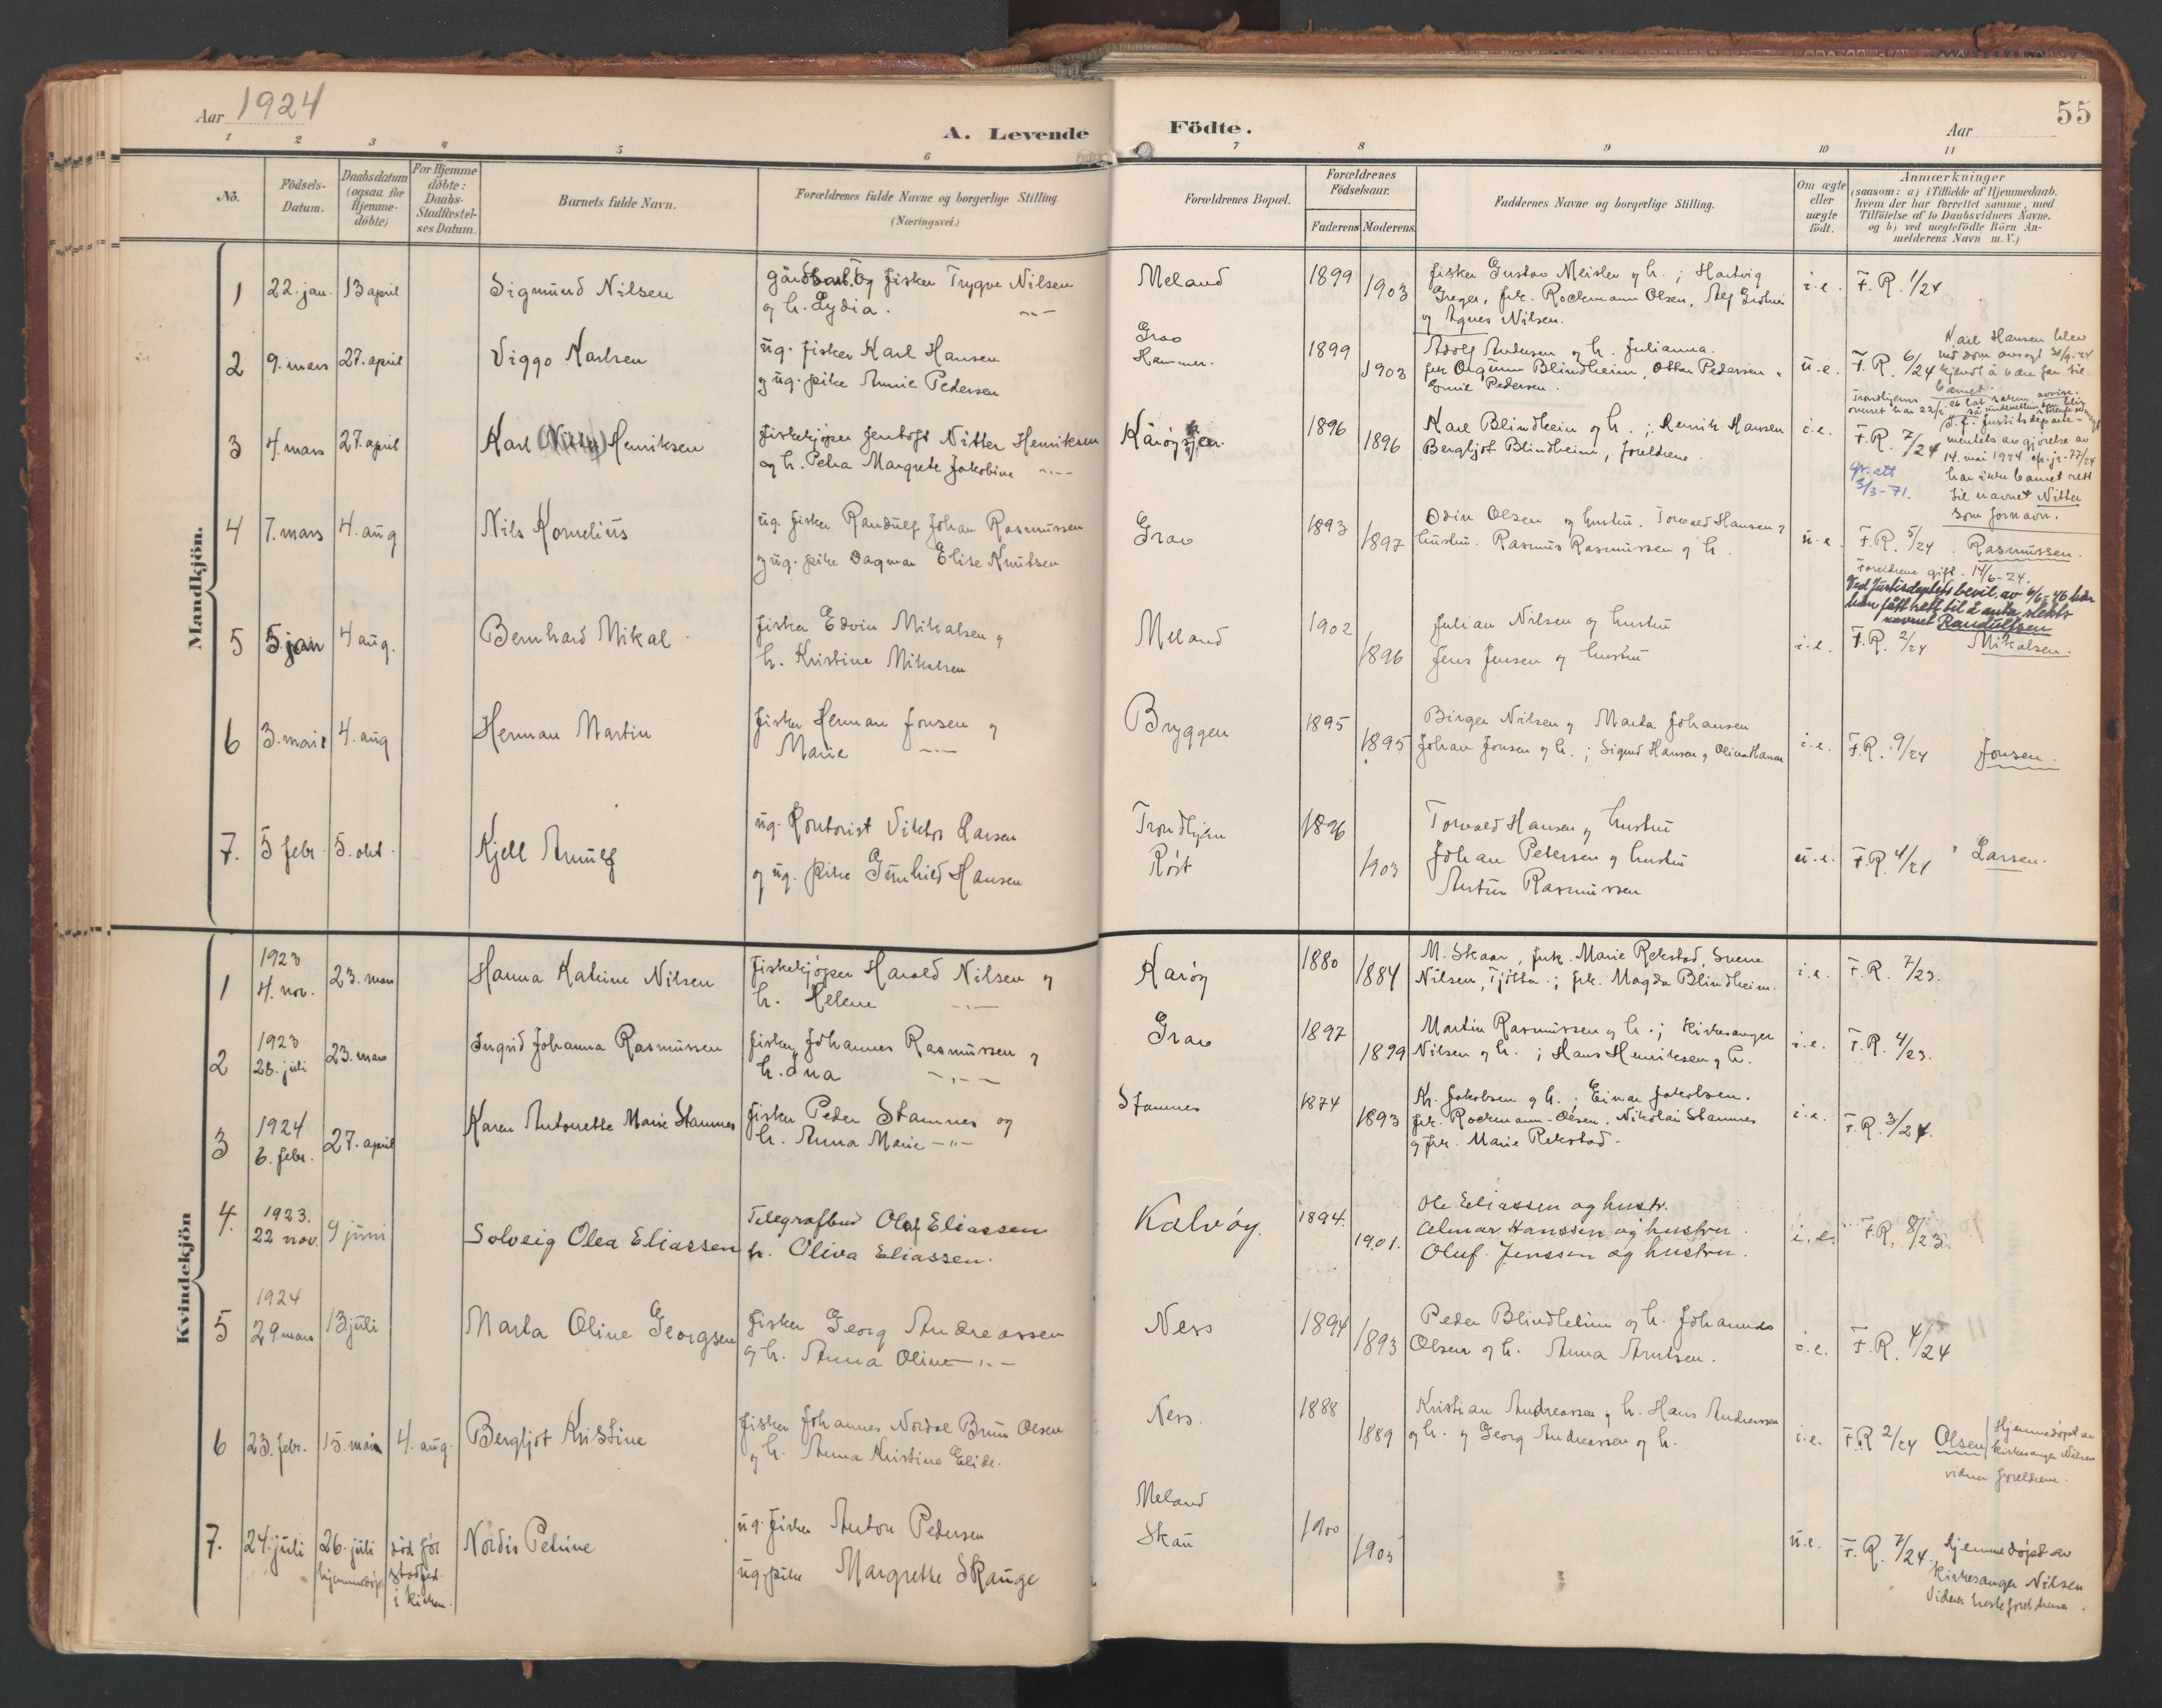 Aar 1924
A. Levende Födte.
Aar
55
1 2 3 4 5 6 7 8 9 10 11
No.
Födsels-
Datum.
Daabsdatum
(ogsaa for
Hjemme-
döbte)
For Hjemme
döbte:
Daabs-
Stadfæstel-
ses Datum.
Barnets fulde Navn.
Forældrenes fulde Navne og borgerlige Stilling.
(Næringsvei.)
Forældrenes Bopæl.
Forældrenes
Födselsaar.
Faderens Moderens
Faddernes Navne og borgerlige Stilling.
Om ægte
eller
uægte
födt.
Anmærkninger
(saasom: a) i Tilfælde af Hjemmedaab.
hvem der har forrettet samme, med
Tilföielse af to Daabsvidners Navne.
og b) ved uægtefödte Börn An-
melderens Navn m. V.)
Mandkjön.
1 22. jan. 13 april Sigmund Nilsen
gårdbr. og fisker Trygve Nilsen
og h. Lydia. -"-
Meland 1899 1903
fisker Gustav Meisler og h.; Hartvig
Greger, frk. Rockmann Olsen,
og Agnes Nilsen.
i.e. F.R. 1/24
2 9. mars 27. april Viggo Karlsen
ug. fisker Karl Hansen
og ug. pike Annie Pedersen
Grav
Hammer.
1899 1903
Adolf Andersen og h. Julianna.
frk Blindheim, Ottar Pedersen
Emil Pedersen.
u.e. F.R. 6/24
Karl Hansen blev
ved dom avsagt 30/9-24
kjendt å være far til
barnet.
3 4. mars 27. april Karl (Nitter) Henriksen
fiskekjøper Jentoft Nitter Henriksen
og h. Petra Margrete Jakobine -"-
Karøysjøen. 1896 1896
Karl Blindheim og h.; Henrik Hansen
Bergljot Blindheim, foreldrene.
i.e. F.R. 7/24
mentets avgjørelse av
14. mai 1924 cfr. jr. 77/24
har ikke barnet rett
til navnet Nitter
som fornavn.
3/3-71.
4 7. mars 4. aug Nils Kornelius
ug. fisker Randulf Johan Rasmussen
og ug. pike Dagmar Elise Knutsen
Grav 1893 1897
Odin Olsen og hustru. Torvald Hansen og
hustru. Rasmus Rasmussen og h.
u.e. F.R. 5/24 Rasmussen.
Foreldrene gift. 14/6-24.
Ved Justisdeptets bevil. av 6/6-46 har
han fått rett til å anta slekts
navnet Randulfsen
5 5 jan 4 aug. Bernhard Mikal
fisker Edvin Mikalsen og
h. Kristine Mikalsen
Meland 1902 1896
Julian Nilsen og hustru
Jens Jensen og hustru
i.e. F.R. 2/24 Mikalsen.
6 3. mai 4. aug Herman Martin
fisker Herman Jonsen og
Marie -"-
Bryggen 1895 1895
Birger Nilsen og Marta Johansen
Johan Jonsen og h.; Sigurd Hansen og Oliva Hansen
i.e. F.R. 9/24 Jonsen.
7. 5 febr. 5. okt. Kjell Arnulf
ug. Kontorist Viktor Larsen
og ug. pike Gunhild Hansen
Trondhjem
Røst
1896 1903
Torvald Hansen og hustru
Johan Petersen og hustru
Artur Rasmussen
u.e. F.R. 4/24 Larsen.
Kvindekjön
1 1923
4. nov. 23. mars Hanna Katrine Nilsen
fiskekjøper Harald Nilsen og
h. Helene -"-
Karøy 1880 1884
M. Skaar, frk. Marie Rekstad, Svene
Nilsen, Tjøtta; frk. Magda Blindheim.
i.e. F.R. 7/23.
2 1923
26. juli 23. mars Ingrid Johanna Rasmussen
fisker Johannes Rasmussen og
h. -"-
Grav 1897 1899
Martin Rasmussen og h.; Kirkesanger
Nilsen og h.; Hans Henriksen og h.
i.e. F.R. 4/23.
3 1924
6. febr. 27. april Karen Antonette Marie Stamnes
fisker Peder Stamnes og
h. Anna Marie -"-
Stamnes 1874 1893
Kr. Jakobsen og h. Einar Jakobsen.
frk. Rockmann-Olsen. Nikolai Stamnes
og frk. Marie Rekstad.
i.e. F.R. 3/24.
4. 1923.
22 nov. 9 juni Solveig Olea Eliassen
Telegrafbud Olaf Eliassen
h. Oliva Eliassen.
Kalvøy. 1894. 1901.
Ole Eliassen og hustr.
Almar Hanssen og hustru.
Oluf Jenssen og hustru.
i.e. F.R. 8/23.
5 1924
29. mars 13 juli Marta Oline Georgsen
fisker Georg Andreassen
og h. Anna Oline -"-
Ness 1894 1893
Peder Blindheim og h. Johannes
Olsen og h. Anna Arntsen.
i.e. F.R. 4/24
6 23. febr. 15. mai 4. aug. Bergljot Kristine
fisker Johannes Nordal Brun Olsen
og h. Anna Kristine Elise.
Ness. 1888 1889
Kristian Andreassen og h. Hans Andreassen
og h. og Georg Andreassen og h.
i.e. F.R 2/24 Olsen
Hjemmedøpt av
kirkesanger Nilsen
vidner foreldrene.
7. 24. juli 26. juli
hjemmedøpt
død før
stadfest.
i kirken.
Nordis Petrine
ug. fisker Anton Pedersen
ug. pike Margrethe Skauge
Meland
Skau
1900 1905
u.e. F.R. 7/24. hjemmedøpt av
kirkesanger Nilsen
Vidner